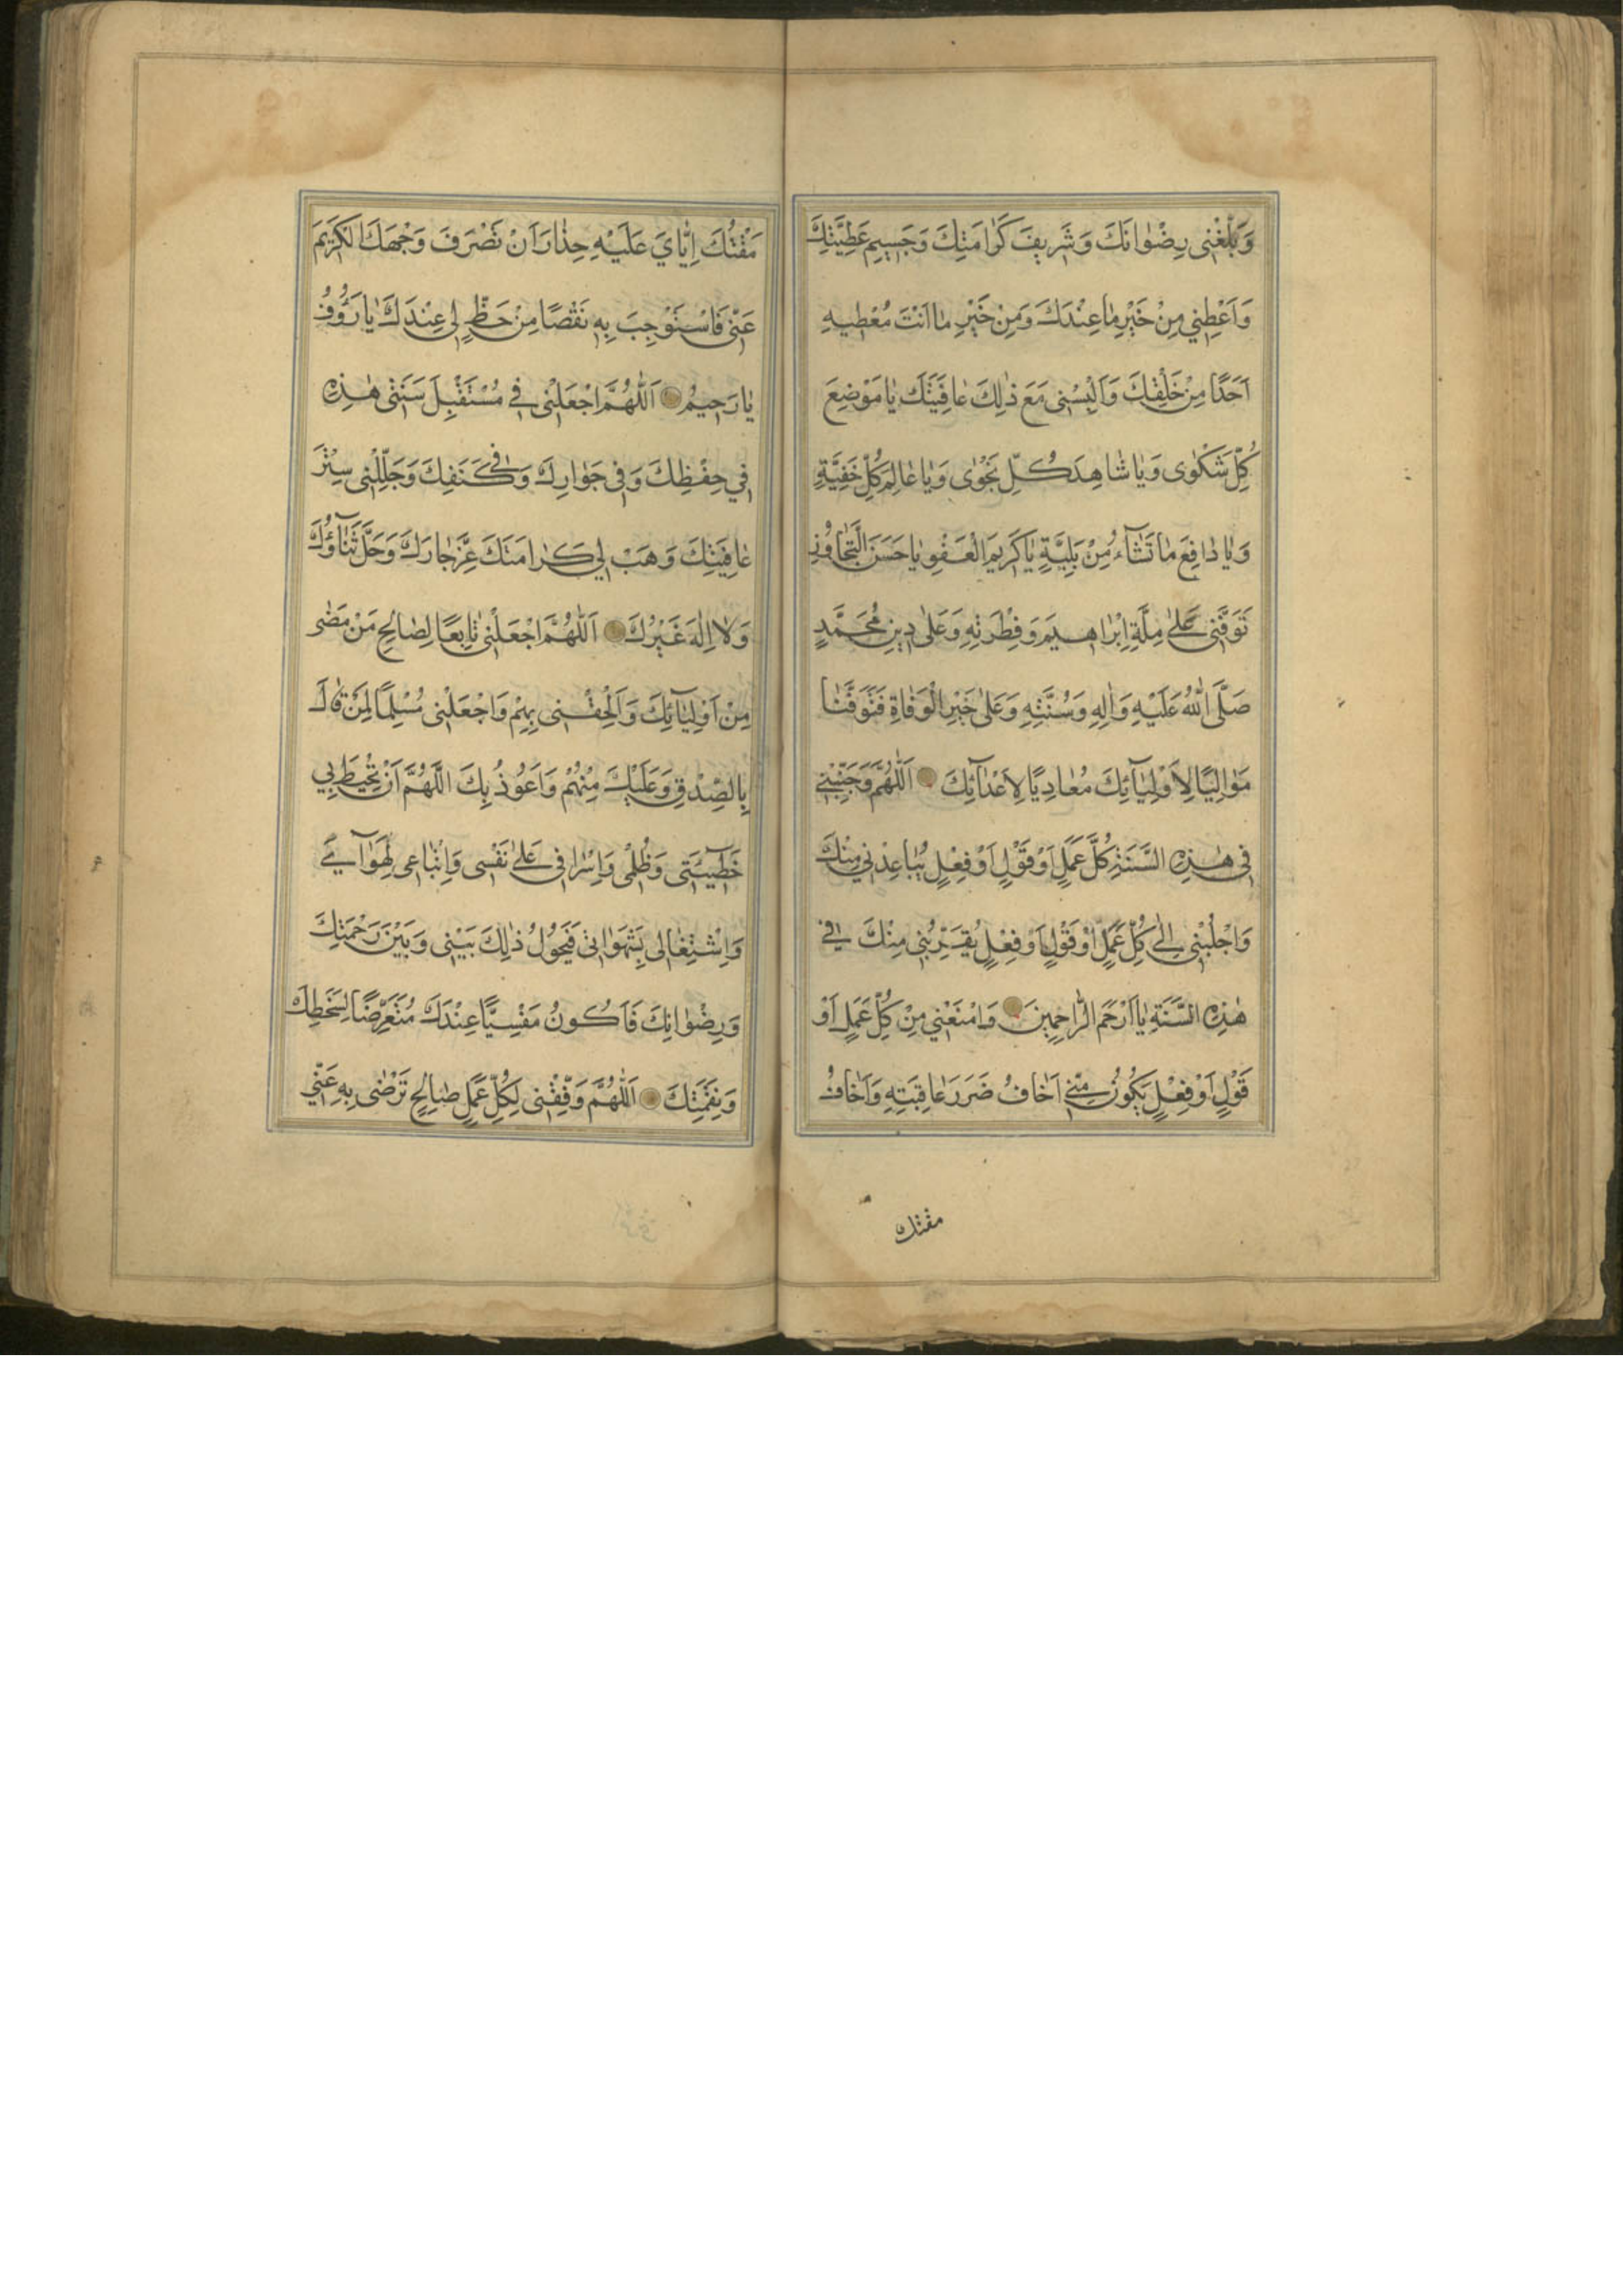 وَبَلِّغْنِی رِضْوانَكَ وَشَرِیفَ كَرامَتِكَ وَجَسِیمِ عَطِیَّتِكَ
وَاَعْطِنِی مِنْ خَیْرِ ماعِنْدَكَ وَمِنْ خَیْرِ ما اَنْتَ مُعْطِیهِ
اَحَدًا مِنْ خَلْقِكَ وَاَلْبِسْنِی مَعَ ذٰلِكَ عافِیَتَكَ یا مَوْضِعَ
كُلِّ شَكْوٰی وَیا شاهِدَ كُلِّ نَجْوٰی وَیا عالِمَ كُلِّ خَفِیَّةٍ
وَیا دافِعَ ما تَشآءُ مِنْ بَلِیَّةٍ یا كَرِیمَ الْعَفْوِ یا حَسَنَ التَّجاوُزِ
تَوَفَّنِی عَلٰی مِلَّةِ اِبْراهِیمَ وَفِطْرَتِهِ وَعَلٰی دِینِ مُحَمَّدٍ
صَلَّی اللّٰهُ عَلَیْهِ وَاٰلِهِ وَسُنَّتِهِ وَعَلٰی خَیْرِ الْوَفاةِ فَتَوَفَّنا
مَوالِیًا لِاَوْلِیآئِكَ مُعادِیًا لِاَعْدآئِكَ اَللّٰهُمَّ وَجَنِّبْنِی
فِی هٰذِهِ السَّنَةِ كُلَّ عَمَلٍ اَوْ قَوْلٍ اَوْ فِعْلٍ یُباعِدُنِی مِنْكَ
وَاجْلُبْنِی اِلٰی كُلِّ عَمَلٍ اَوْ قَوْلٍ اَوْ فِعْلٍ یُقَرِّبُنِی مِنْكَ فِی
هٰذِهِ السَّنَةِ یا اَرْحَمَ الرّاحِمِینَ وَامْنَعْنِی مِنْ كُلِّ عَمَلٍ اَوْ
قَوْلٍ اَوْ فِعْلٍ یَكُونُ مِنِّی اَخافُ ضَرَرَ عاقِبَتِهِ وَاَخافُ
مقتك
مَقْتَكَ اِیّایَ عَلَیْهِ حِذارَ اَنْ تَصْرِفَ وَجْهَكَ الْكَرِیمَ
عَنِّی فَاَسْتَوْجِبَ بِهِ نَقْصًا مِنْ حَظٍّ لِی عِنْدَكَ یا رَؤُوفُ
یا رَحِیمُ اَللّٰهُمَّ اجْعَلْنِی فِی مُسْتَقْبِلِ سَنَتِی هٰذِهِ
فِی حِفْظِكَ وَفِی جَوارِكَ وَفِی كَنَفِكَ وَجَلِّلْنِی سِتْرَ
عافِیَتِكَ وَهَبْ لِی كَرامَتَكَ عَزَّ جارُكَ وَجَلَّ ثَنآؤُكَ
وَلا اِلٰهَ غَیْرُكَ اَللّٰهُمَّ اجْعَلْنِی تابِعًا لِصالِحِ مَنْ مَضٰی
مِنْ اَوْلِیآئِكَ وَاَلْحِقْنِی بِهِمْ وَاجْعَلْنِی مُسْلِمًا لِمَنْ قالَ
بِالصِّدْقِ وَعَلَیْكَ مِنْهُمْ وَاَعُوذُ بِكَ اللّٰهُمَّ اَنْ تُحِیطَ بِی
خَطِیئَتِی وَظُلْمِی وَاِسْرافِی عَلٰی نَفْسِی وَاِتِّباعِی لِهَوآئِی
وَاِشْتِغالِی بِشَهَواتِی فَیَحُولُ ذٰلِكَ بَیْنِی وَبَیْنَ رَحْمَتِكَ
وَرِضْوانِكَ فَاَكُونُ مَنْسِیًّا عِنْدَكَ مُتَعَرِّضًا لِسَخَطِكَ
وَنِقْمَتِكَ اَللّٰهُمَّ وَفِّقْنِی لِكُلِّ عَمَلٍ صالِحٍ تَرْضٰی بِهِ عَنِّی